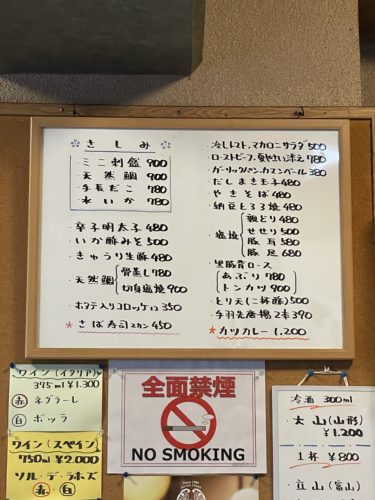 さしみ
ミニ刺盛 900
天然鯛 900
手長だこ 780
水いか 780
・辛子明太子 480
・いか酢みそ 500
・きゅうり生酢 480
・天然鯛
骨蒸し 780
切身塩焼 900
・ホタテ入りコロッケ 350
★さば寿司 2カン 450
・冷しトマト,マカロニサラダ 500
・ローストビーフ,
780
・ガーリックパン,カマンベール 380
・だしまき玉子 480
・やきそば 480
・納豆とろろ焼 480
・塩焼
親どり 480
せせり 500
豚耳 580
豚足 680
・黒豚肩ロース
あぶり 780
トンカツ 900
・とり天(二杯酢) 500
・手羽先唐揚 2本 390
★カツカレー 1,200
ワイン (イタリア)
375ml ¥1.300
赤 ネグラーレ
白 ボッラ
ワイン (スペイン)
750ml ¥2.000
ソル・デ・ラホズ
赤・白
全面禁煙
NO SMOKING
冷酒 300ml
・大山(山形)
¥1.200
1杯 ¥800
・立山(富山)